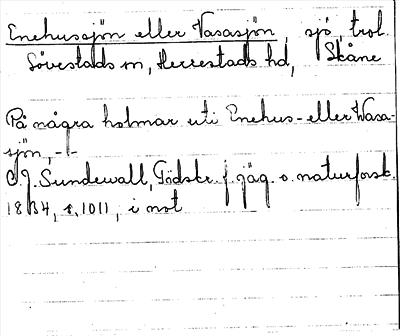 Enehussjön eller Vasasjön, sjö, trol.
Sövestads sn, Herrestads hd, Skåne
På några holmar uti Enehus- eller Wasa-
sjön, -
C.J. Sundewall, Tidskr. f. jäg. o. naturforsk.
1834, s. 1011, i not